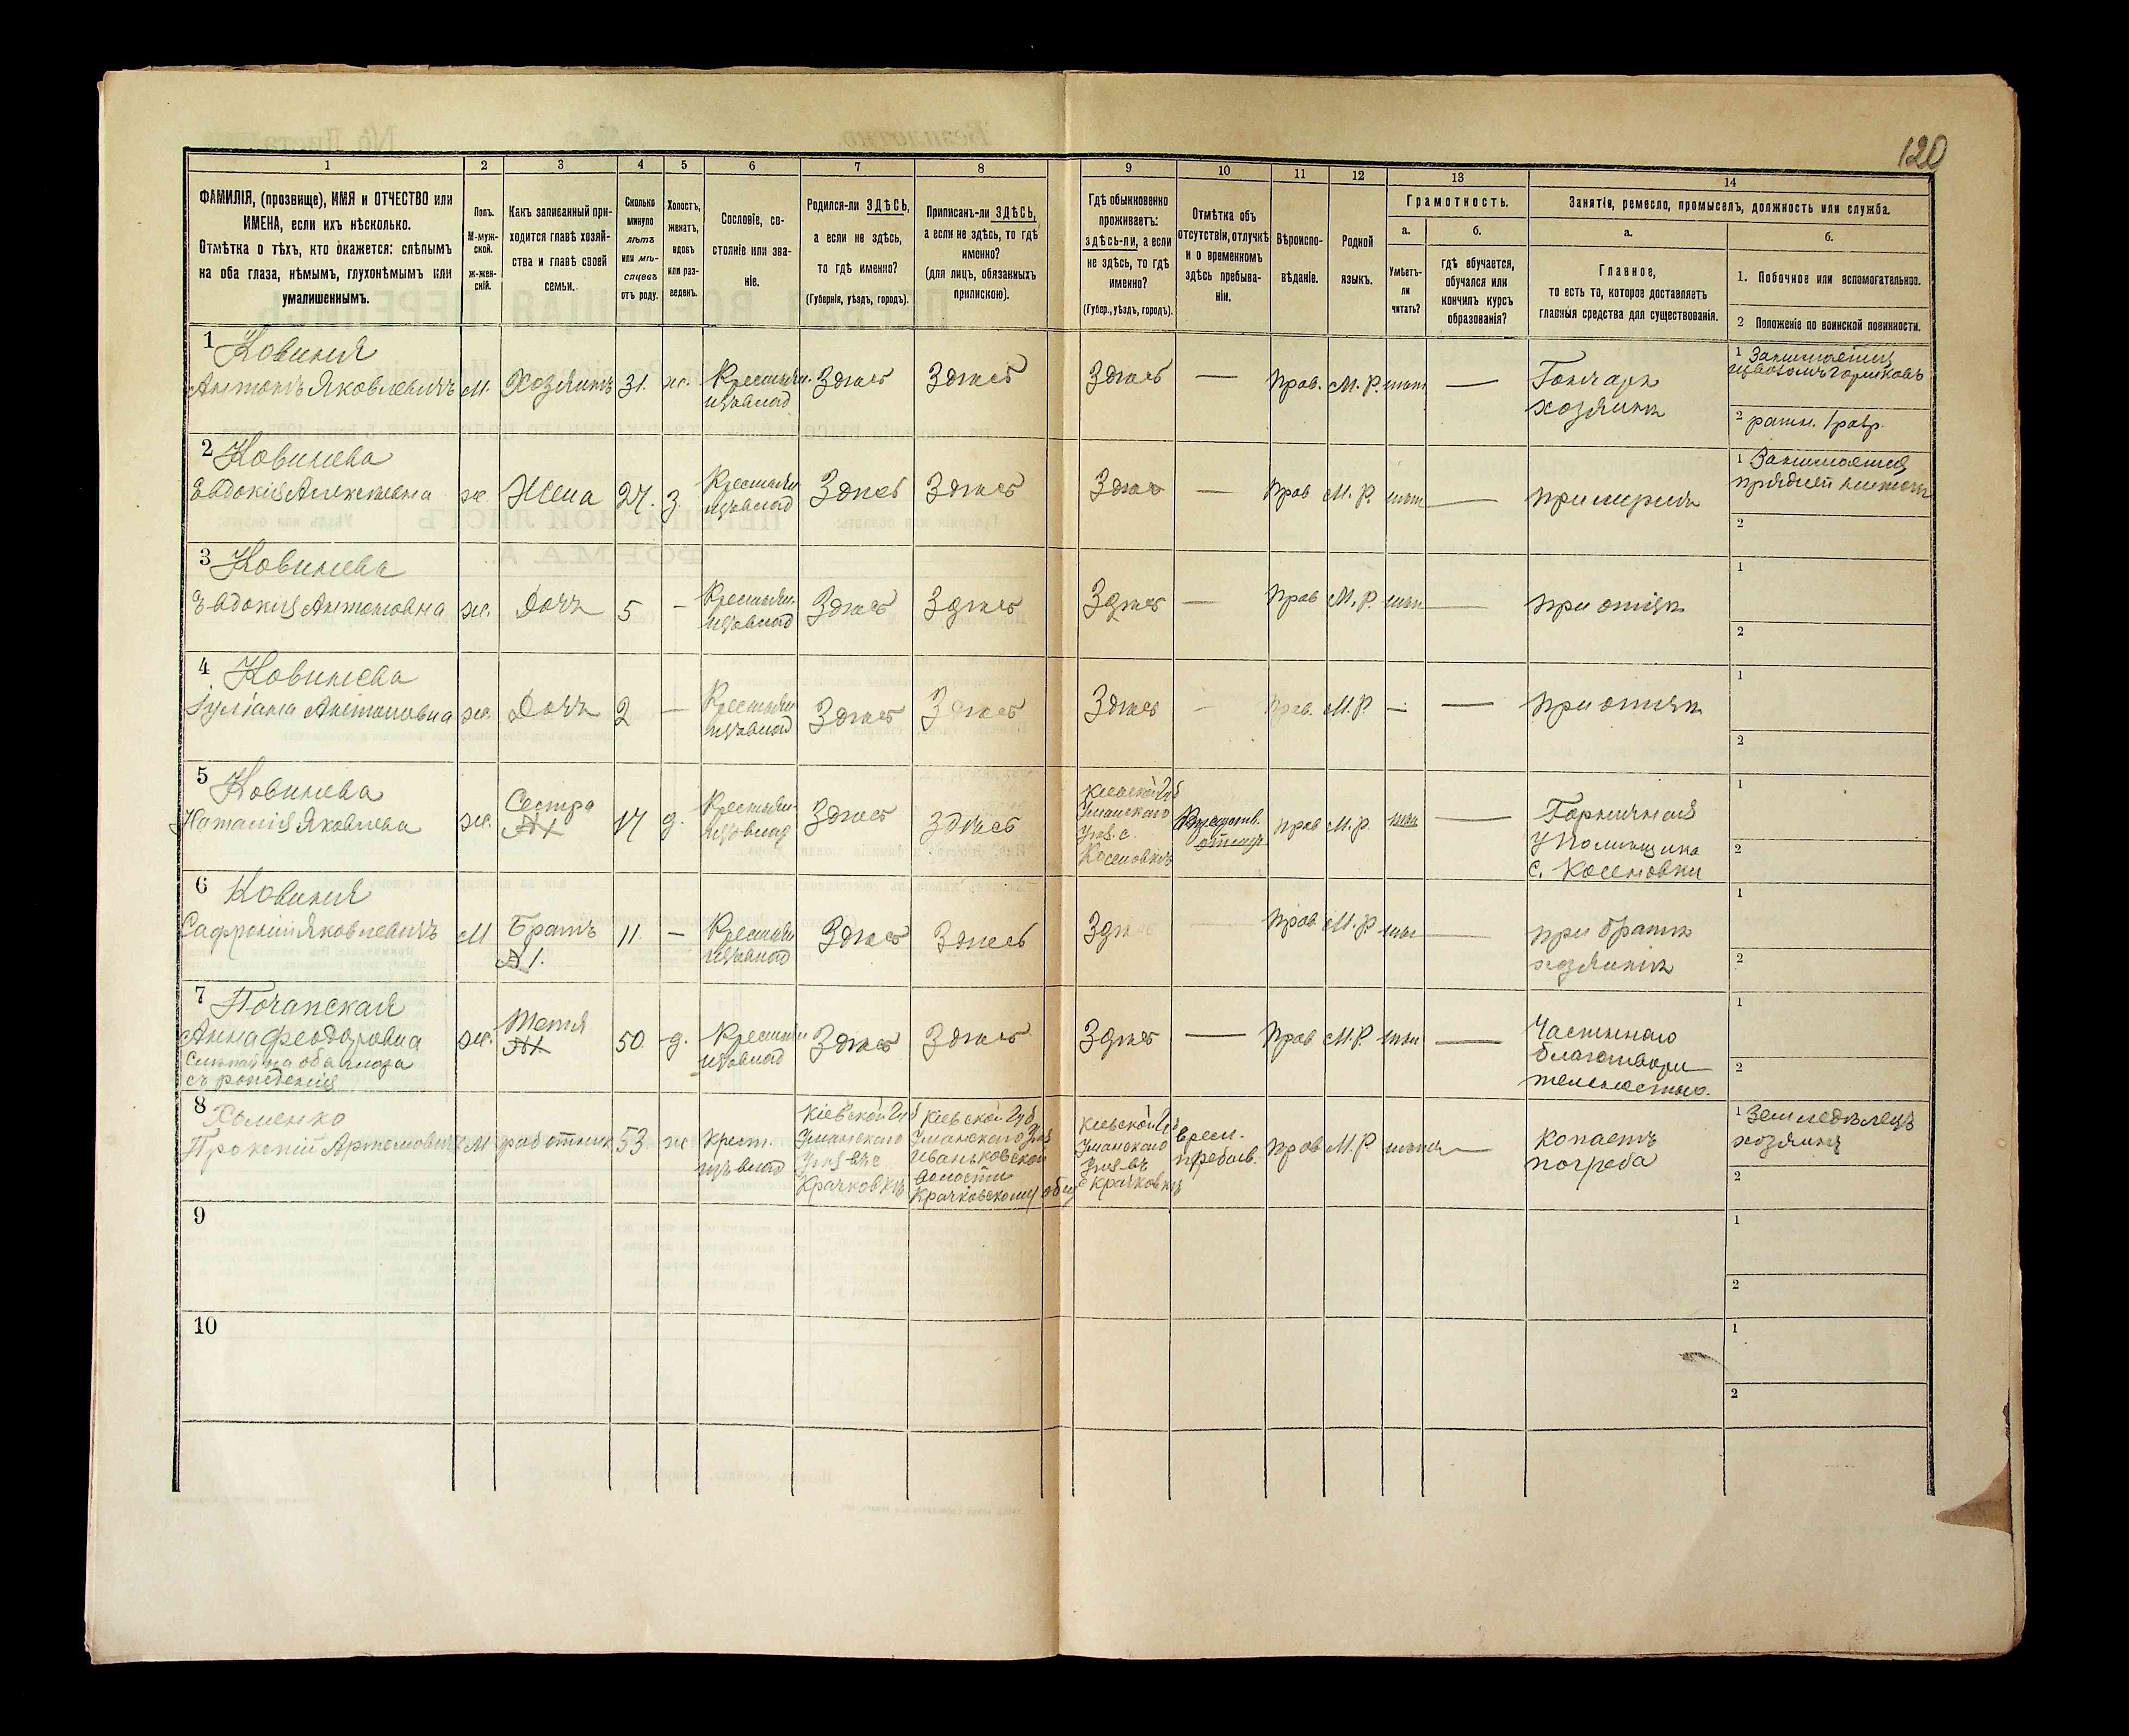 120
1 2 3 4 5 6 7 8 9 10 11 12 13 14
ФАМИЛІЯ, (прозвище), ИМЯ и ОТЧЕСТВО или
ИМЕНА, если ихъ нѣсколько.
Отмѣтка о тѣхъ, кто окажется: слѣпымъ
на оба глаза, нѣмымъ, глухонѣмымъ или
умалишеннымъ.
Полъ.
М-муж-
ской.
ж-жен-
скій.
Какъ записанный при-
ходится главѣ хозяй-
ства и главѣ своей
семьи.
Сколько
минуло
лѣтъ
или мѣ-
сяцевъ
отъ роду.
Холостъ,
женатъ,
вдовъ
или раз-
веденъ.
Сословіе, со-
стояніе или зва-
ніе.
Родился-ли ЗДѢСЬ,
а если не здѣсь,
то гдѣ именно?
(Губернія, уѣздъ, городъ).
Приписанъ-ли ЗДѢСЬ,
а если не здѣсь, то гдѣ
именно?
(для лицъ, обязанныхъ
припискою).
Гдѣ обыкновенно
проживаетъ:
здѣсь-ли, а если
не здѣсь, то гдѣ
именно?
(Губер., уѣздъ, городъ).
Отмѣтка объ
отсутствіи, отлучкѣ
и о временномъ
здѣсь пребыва-
ніи.
Вѣроиспо-
вѣданіе.
Родной
языкъ.
Грамотность.
а.
Умѣетъ-
ли
читать?
б.
гдѣ обучается,
обучался или
кончилъ курсъ
образованія?
Занятіе, ремесло, промыселъ, должность или служба.
а.
Главное,
то есть то, которое доставляетъ
главныя средства для существованія.
б.
1. Побочное или вспомогательное.
2 Положеніе по воинской повинности.
1 Ковиня
Антонъ Яковлевичъ М. Хозяинъ 31. ж. Крестьян. Здѣсь Здѣсь Здѣсь — Прав. М. Р. —
Гончаръ
хозяинъ
1 Занимается
2 ратн. 1 разр.
2 Ковинева
Евдокія Алексеевна ж. Жена 27. з. Крестьян Здѣсь Здѣсь Здѣсь — Прав М. Р. —
1 Занимается
2
3 Ковинева
Евдокія Антоновна ж. Дочь 5 — Крестьян. Здѣсь Здѣсь Здѣсь — Прав М. Р. — при отцѣ
1
2
4 Ковинева
Іуліанія Антоновна ж. Дочь 2 — Крестьян Здѣсь Здѣсь Здѣсь — Прав. М. Р. — — при отцѣ
1
2
5 Ковинева
Наталія Яковлева ж. Сестра 17 д. Крестьян. Здѣсь Здѣсь
Кіевской Губ
Уманскаго
Уѣз. с.
Косеновкѣ
прав М. Р. —
Горничная
у Помѣщика
с. Косеновки
1
2
6 Ковиня
Яковлевичъ М Братъ 11 — Крестьян Здѣсь Здѣсь Здѣсь Прав М. Р —
при братѣ
хозяинѣ
1
2
7 Почапская
Анна Феодоровна ж. Тетя 50. д. Крестьян Здѣсь Здѣсь Здѣсь — Прав М. Р. —
Слѣпая на оба глаза
съ рожденія
Частною
благотвори-
тельностью.
1
2
8 Хоменко
Прокопій Артемовичъ М работник 53. ж крест.
Кіевской Губ
Уманскаго
Крачковкѣ
Кіевской Губ
Уманскаго Уѣз
Иваньковской
Волости
Крачковскому общ
Кіевской Губ
Уманскаго
Уѣз въ
с Крачковкѣ
врем.
пребыв.
прав М. Р —
Копаетъ
погреба
1 Земледѣлецъ
хозяинъ
2
9
1
2
10
1
2